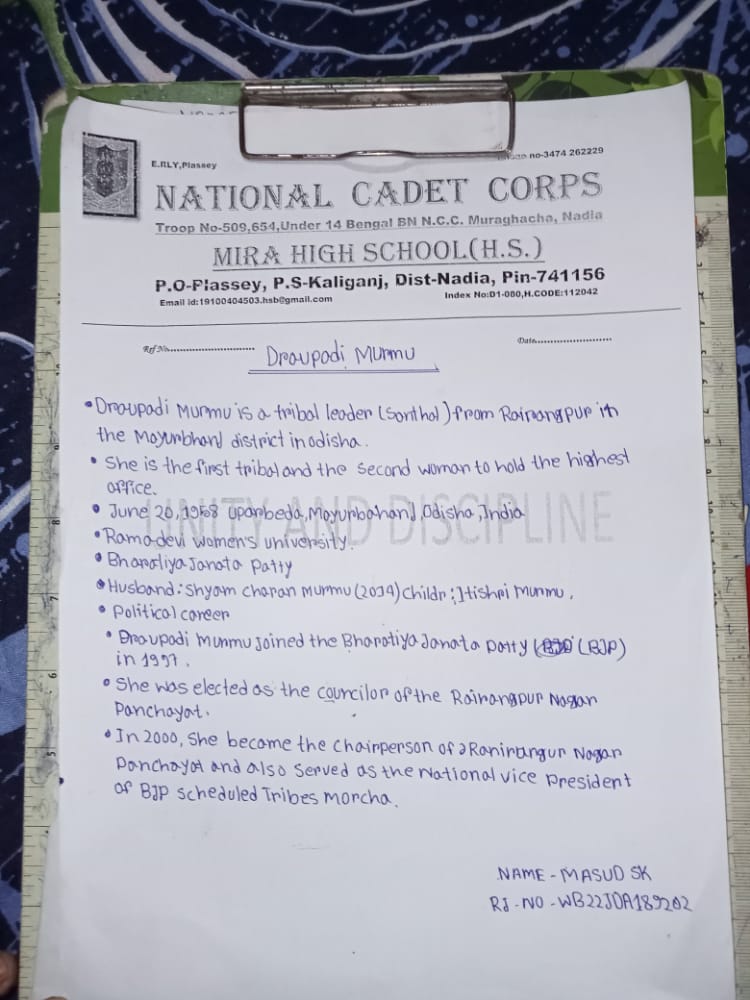 E.RLY,Plassey
no-3474 262229
NATIONAL CADET CORPS
Troop No-509,654,Under 14 Bengal BN N.C.C. Muraghacha, Nadia
MIRA HIGH SCHOOL(H.S.)
P.O-Plassey, P.S-Kaliganj, Dist-Nadia, Pin-741156
Email id:19100404503.hsb@gmail.com Index No:D1-080,H.CODE:112042
Ref No............................ Date........................
Draupadi Murmu
• Draupadi Murmu is a tribal leader (Santhal) from Rairangpur in
the Mayurbhanj district in odisha.
• She is the first tribal and the second woman to hold the highest
office.
UNITY AND DISCIPLINE
• June 20, 1958 uparbeda, Mayurbahanj, Odisha, India
• Ramadevi women's university.
• Bharatiya Janata Patty
• Husband: Shyam charan murmu (2014) childr: Itishri Murmu.
• Political career
• Draupadi Murmu Joined the Bharatiya Janata patty (BJP)
in 1997.
• She was elected as the councilor of the Rairangpur Nagar
Panchayat.
• In 2000, She became the chairperson of Ranirangur Nagar
Panchayat and also served as the National vice president
of BJP scheduled Tribes morcha.
NAME - MASUD SK
RJ - NO - WB22JDA189202